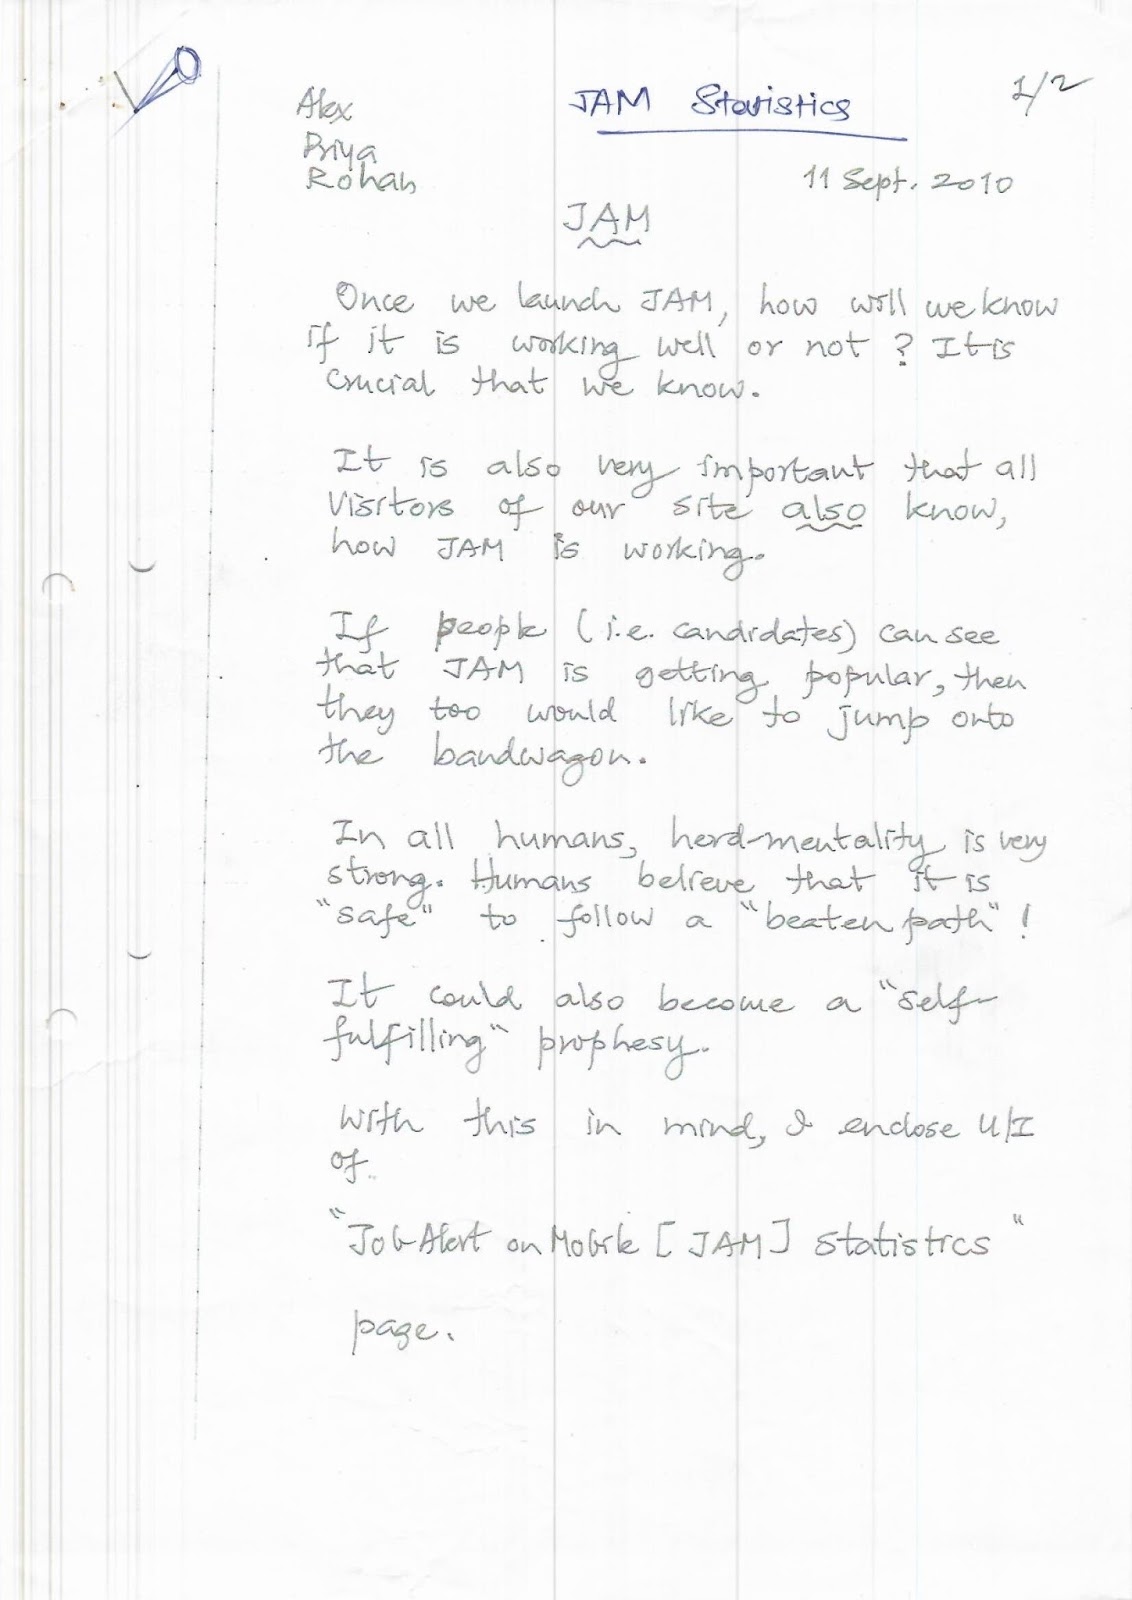 JAM Statistics
1/2
Alex
Priya
Rohan
11 Sept. 2010
JAM
Once we launch JAM, how will we know
if it is working well or not ? It is
crucial that we know.
It is also very important that all
Visitors of our site also know,
how JAM is working.
If people (i.e. candidates) can see
that JAM is getting popular, then
they too would like to jump onto
the bandwagon.
In all humans, herd-mentality is very
strong. Humans believe that it is
"safe" to follow a "beaten path" !
It could also become a "self-
fulfilling" prophesy.
With this in mind, I enclose U/I
of
"Job-Alert on Mobile [JAM] Statistics"
page.